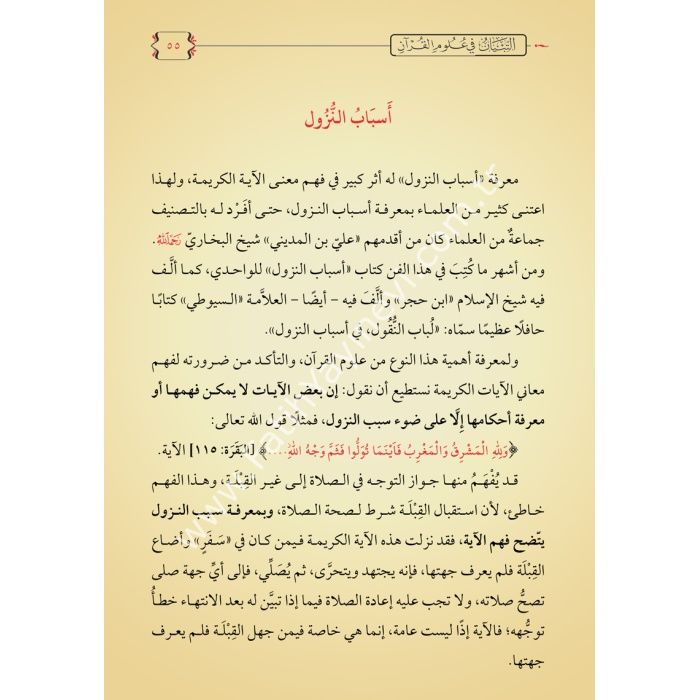 التِّبْيَانُ في عُلُومِ القُرْآنِ
٥٥
أَسبَابُ النُّزُول
معرفة «أسباب النزول» له أثر كبير في فهم معنى الآية الكريمة، ولهذا
اعتنى كثير من العلماء بمعرفة أسباب النزول، حتى أفَرْد له بالتصنيف
جماعةٌ من العلماء كان من أقدمهم «عليّ بن المديني» شيخ البخاريّ رَحِمَهُ اللَّهُ.
ومن أشهر ما كُتِبَ في هذا الفن كتاب «أسباب النزول» للواحدي، كما ألَّف
فيه شيخ الإسلام «ابن حجر» وألَّفَ فيه – أيضًا – العلاَّمة «السيوطي» كتابًا
حافلًا عظيمًا سمّاه: «لُباب النُّقُول، في أسباب النزول».
ولمعرفة أهمية هذا النوع من علوم القرآن، والتأكد من ضرورته لفهم
معاني الآيات الكريمة نستطيع أن نقول: إن بعض الآيات لا يمكن فهمها أو
معرفة أحكامها إلَّا على ضوء سبب النزول، فمثلًا قول الله تعالى:
﴿وَلِلَّهِ الْمَشْرِقُ وَالْمَغْرِبُ فَأَيْنَمَا تُوَلُّوا فَثَمَّ وَجْهُ اللَّهِ....﴾ [البَقَرَة: ١١٥] الآية.
قد يُفْهَمُ منها جواز التوجه في الصلاة إلى غير القِبْلَة، وهذا الفهم
خاطئ، لأن استقبال القِبْلَة شرط لصحة الصلاة، وبمعرفة سبب النزول
يتّضح فهم الآية، فقد نزلت هذه الآية الكريمة فيمن كان في «سَفَرٍ» وأضاع
القِبْلَة فلم يعرف جهتها، فإنه يجتهد ويتحرَّى، ثم يُصَلِّي، فإلى أيِّ جهة صلى
تصحُّ صلاته، ولا تجب عليه إعادة الصلاة فيما إذا تبيَّن له بعد الانتهاء خطأُ
توجُّهه؛ فالآية إذًا ليست عامة، إنما هي خاصة فيمن جهل القِبْلَة فلم يعرف
جهتها.